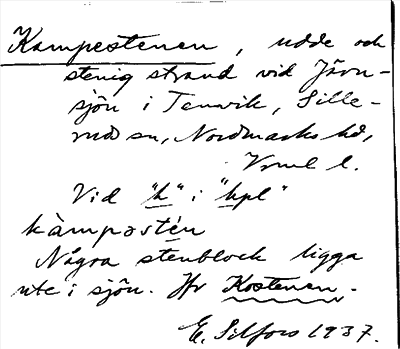 Kampestenen, udde och
stenig strand vid Järn-
sjön i Tenvik, Sille-
rud sn, Nordmarks hd,
Vrml l.
Vid "k" i "kpl"
kàmpəstén
Några stenblock ligga
ute i sjön. Jfr Kostenen.
E. Silfors 1937.